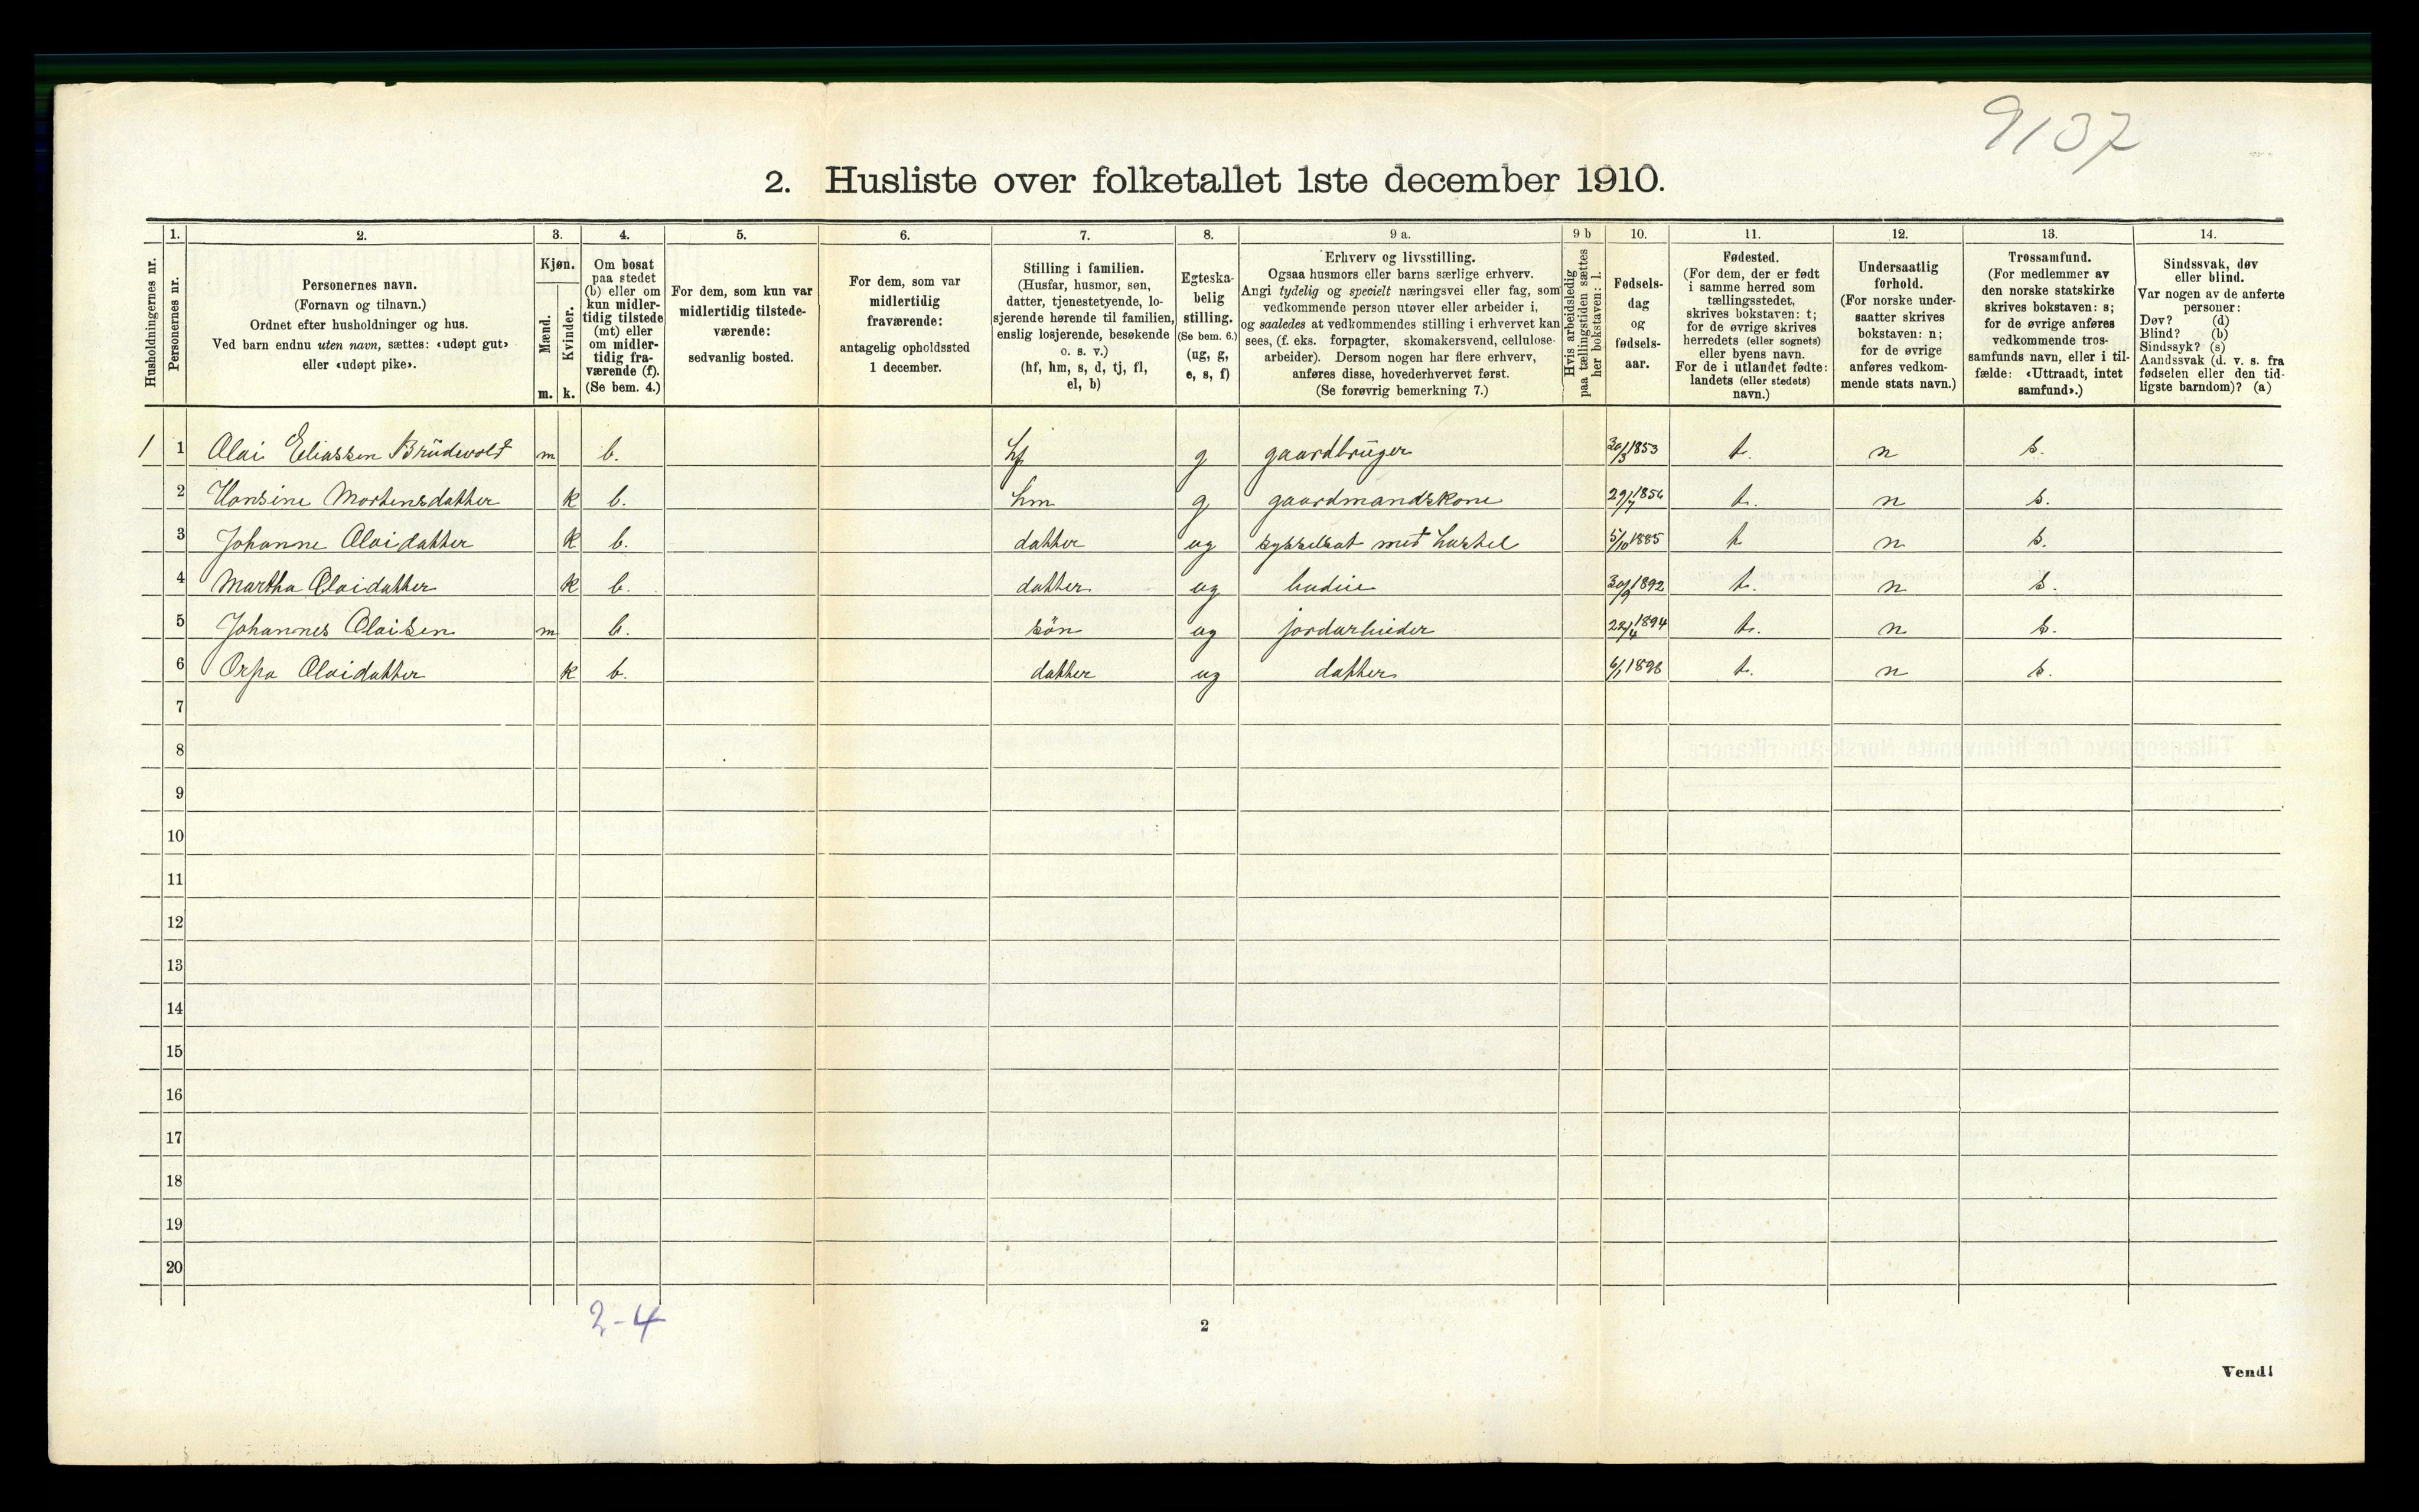 9137
2. Husliste over folketallet 1ste december 1910.
Husholdningernes nr.
1.
Personernes nr.
2.
Personernes navn.
(Fornavn og tilnavn.)
Ordnet efter husholdninger og hus.
Ved barn endnu uten navn, sættes: «udøpt gut»
eller «udøpt pike».
3.
Kjøn.
Mænd.
Kvinder.
m. k.
4.
Om bosat
paa stedet
(b) eller om
kun midler-
tidig tilstede
(mt) eller
om midler-
tidig fra-
værende (f).
(Se bem. 4.)
5.
For dem, som kun var
midlertidig tilstede-
værende:
sedvanlig bosted.
6.
For dem, som var
midlertidig
fraværende:
antagelig opholdssted
1 december.
7.
Stilling i familien.
(Husfar, husmor, søn,
datter, tjenestetyende, lo-
sjerende hørende til familien,
enslig losjerende, besøkende
o. s. v.)
(hf, hm, s, d, tj, fl,
el, b)
8.
Egteska-
belig
stilling.
(Se bem. 6.)
(ug, g,
e, s, f)
9 a.
Erhverv og livsstilling.
Ogsaa husmors eller barns særlige erhverv.
Angi tydelig og specielt næringsvei eller fag, som
vedkommende person utøver eller arbeider i,
og saaledes at vedkommendes stilling i erhvervet kan
sees, (f. eks. forpagter, skomakersvend, cellulose-
arbeider). Dersom nogen har flere erhverv,
anføres disse, hovederhvervet først.
(Se forøvrig bemerkning 7.)
9 b
Hvis arbeidsledig
paa tællingstiden sættes
her bokstaven: l.
10.
Fødsels-
dag
og
fødsels-
aar.
11.
Fødested.
(For dem, der er født
i samme herred som
tællingsstedet,
skrives bokstaven: t;
for de øvrige skrives
herredets (eller sognets)
eller byens navn.
For de i utlandet fødte:
landets (eller stedets)
navn.)
12.
Undersaatlig
forhold.
(For norske under-
saatter skrives
bokstaven: n;
for de øvrige
anføres vedkom-
mende stats navn.)
13.
Trossamfund.
(For medlemmer av
den norske statskirke
skrives bokstaven: s;
for de øvrige anføres
vedkommende tros-
samfunds navn, eller i til-
fælde: «Uttraadt, intet
samfund».)
14.
Sindssvak, døv
eller blind.
Var nogen av de anførte
personer:
Døv? (d)
Blind? (b)
Sindssyk? (s)
Aandssvak (d. v. s. fra
fødselen eller den tid-
ligste barndom)? (a)
1 1 Olai Eliassen Brudevold m b. hf g gaardbruger 30/3 1853 t. n s.
2 Hansine Mortensdatter k b. hm g gaardmandskone 29/7 1856 t. n s.
3 Johanne Olaidatter k b. datter ug sysselsat med husstel 5/10 1885 t n s.
4 Martha Olaidatter k b. datter ug budeie 30/9 1892 t. n s.
5 Johannes Olaisen m b. søn ug jordarbeider 22/4 1894 t. n s.
6 Orpa Olaidatter k b. datter ug datter 6/1 1898 t. n s.
7
8
9
10
11
12
13
14
15
16
17
18
19
20
2-4
2
Vend!